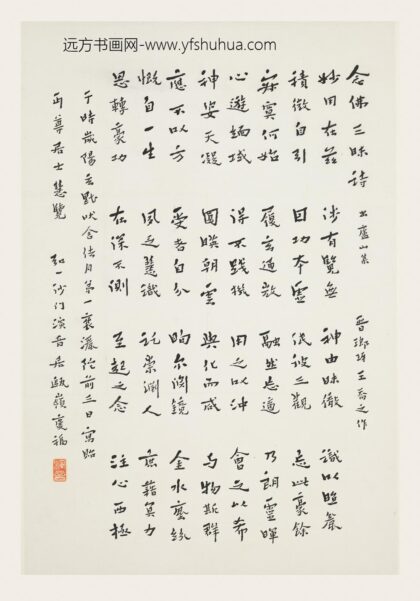 远方书画网-www.yfshuhua.com
念佛三昧詩 出廬山集 晉瑯玡王喬之作
妙用在茲 涉有覽無 神由昧徹 識以照麤
積微自引 因功本虛 彼三觀 忘此豪餘
寂寞何始 履玄通微 融然忘適 乃朗靈暉
心遊緬域 得不踐機 用之以沖 會之以希
神姿天凝 圓映朝雲 與化而感 与物斯群
應不以方 受者自分 尔淵鏡 金水塵紛
慨自一生 夙乏慧識 託崇淵人 庶藉冥力
思轉豪功 在深不測 至哉之念 注心西極
于時歲陽玄黓吠舍佉月第一褒灑陀前三日寫貽
丏尊居士慧覽 弘一沙門演音居甌嶺慶福